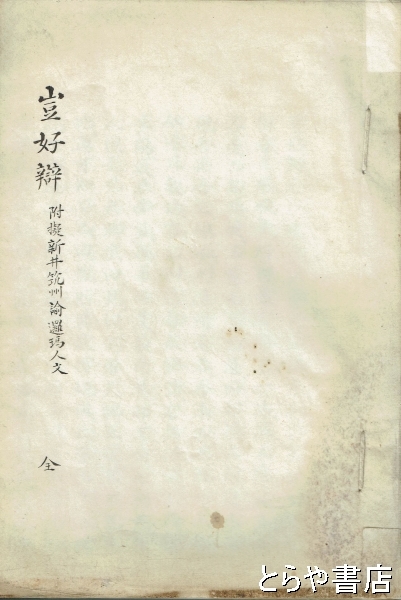 豈好辯 附擬新井筑州諭邏瑪人文 全
とらや書店